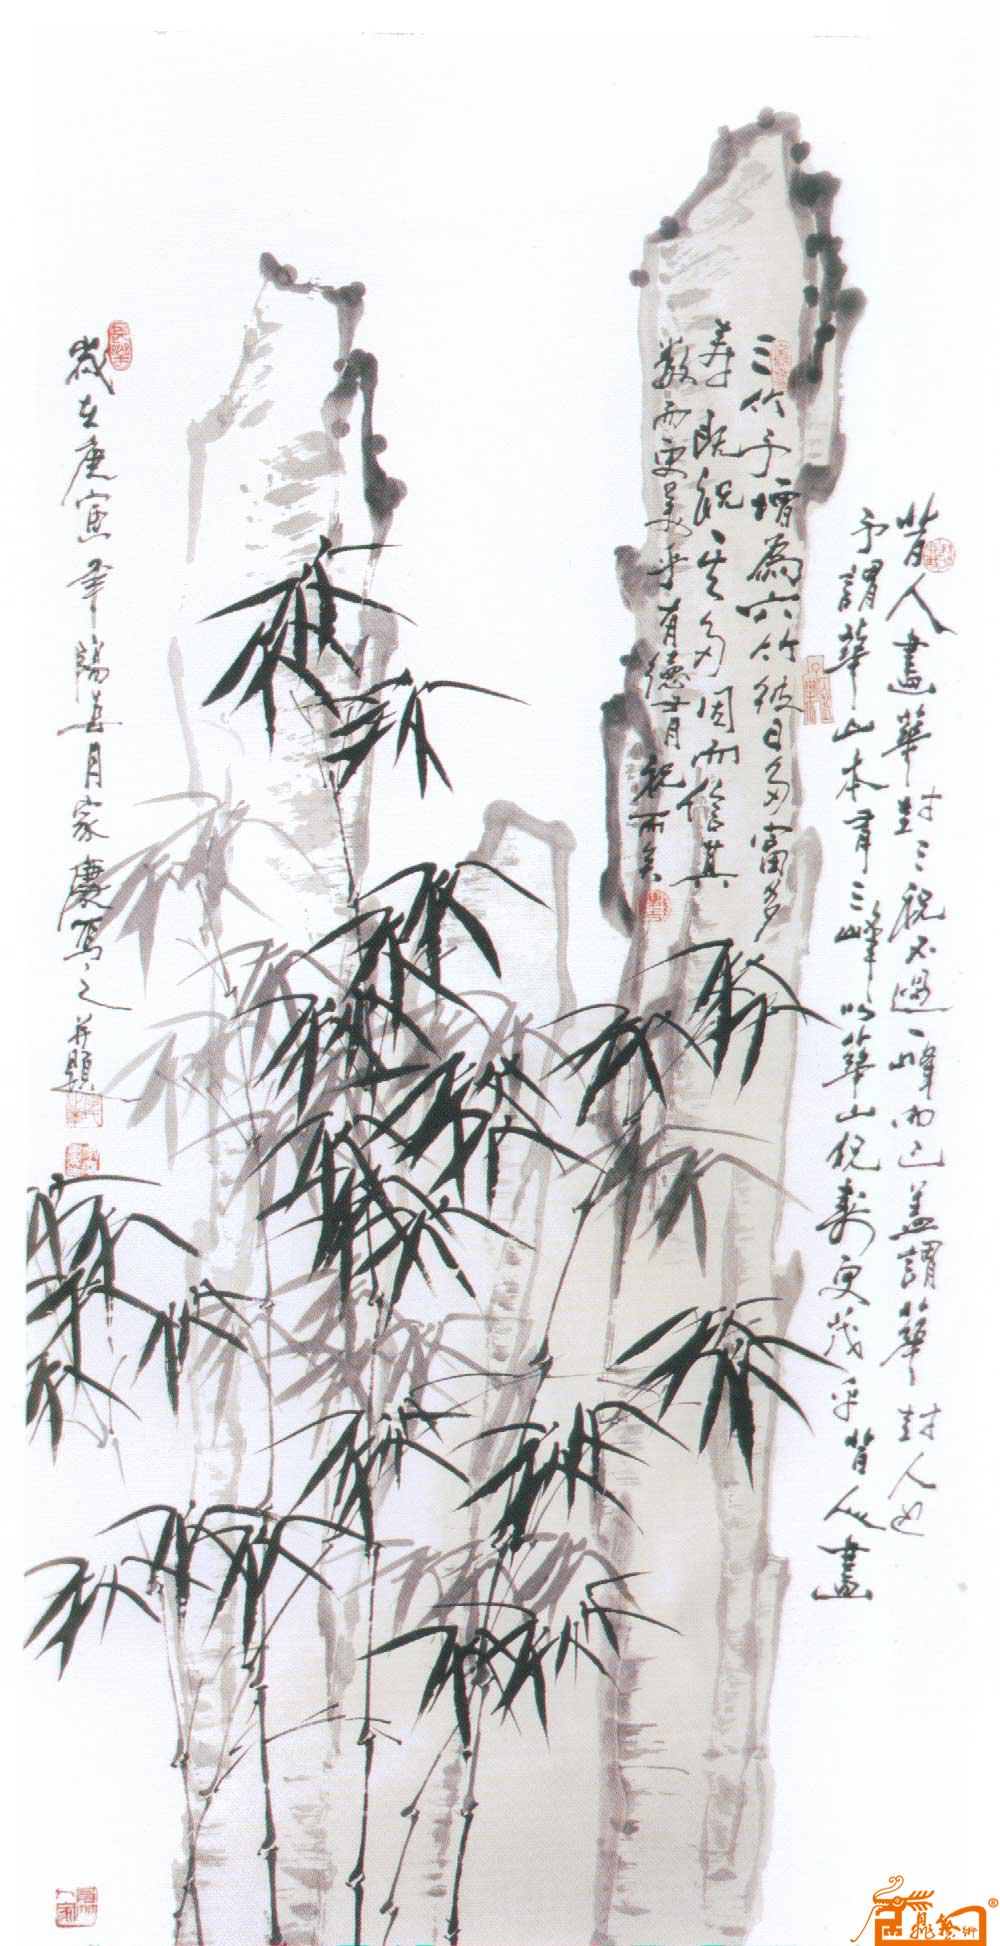 昔人畫華封三祝不過一峰而已蓋謂華封人也
予謂華山本有三峰以華山祝壽更茂乎昔人畫
三竹予增為六竹彼曰多富多
壽既祝其多因而倍其
數而更美乎有德者祝而矣
歲在庚寅年陽春月家康寫之并題